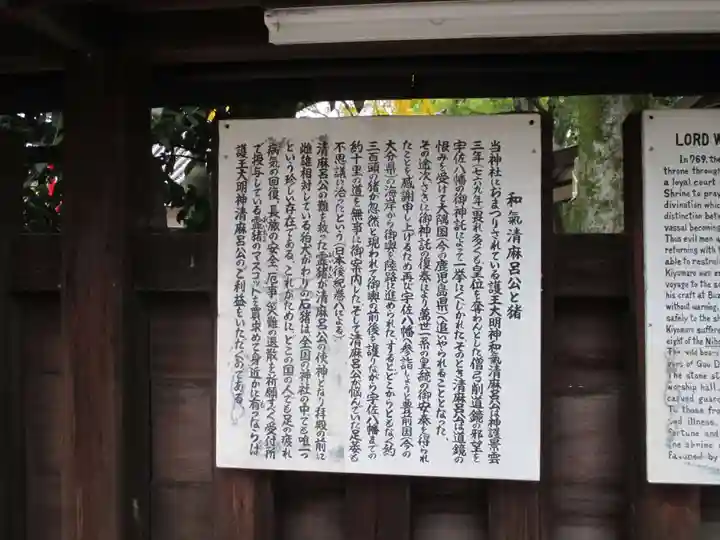 和氣清麻呂公と猪
当神社におまつりされている護王大明神和氣清麻呂公は神護景雲
三年(七六九年)畏れ多くも皇位を奪わんとした僧弓削道鏡の邪望を
宇佐八幡の御神託によって一挙にくじかれた、そのとき清麻呂公は道鏡の
恨みを受けて大隅国(今の鹿児島県)へ追いやられることとなった、
その途次さきに御神託の復奏により萬世一系の皇統の御安泰を得られ
たことを感謝申し上げるため再び宇佐八幡へ参詣しようと豊前国(今の
大分県)の海岸から御輿を陸路に進められた、するとどこからともなく約
三百頭の猪が忽然と現われて御輿の前後を護りながら宇佐八幡までの
約十里の道を無事に御案内した、そして清麻呂公が悩んでいた足萎も
不思議に治ったという(日本後紀巻八による)
清麻呂公の難を救った霊猪が清麻呂公の使神となり拝殿の前に
雌雄相対している狛犬がわりの石猪は全国の神社の中でも唯一つ
という珍しい存在である、これがために、どこの国の人でも足の疲れ
病気の回復、長旅の安全、厄事災難の退散を祈願すべく受付所
で授与している霊猪のマスコットを買求めて身近かに有つならば
護王大明神清麻呂公のご利益をいただくのである
LORD W
In 769, the
throne through
a loyal court
Shrine to pray
divination which
distinction betw
vassal becoming
Thus evil men w
returning with t
able to restrain
Kiyomaro was ex
voyage to the so
his craft at Buz
without warning,
safely to the sh
Kiyomaro suffere
eight of the Niho
The wild boars
vers of Gou D
The stone st
worship hall
carved guard
To those fro
illness,
fortune and
the shrine
favoured by